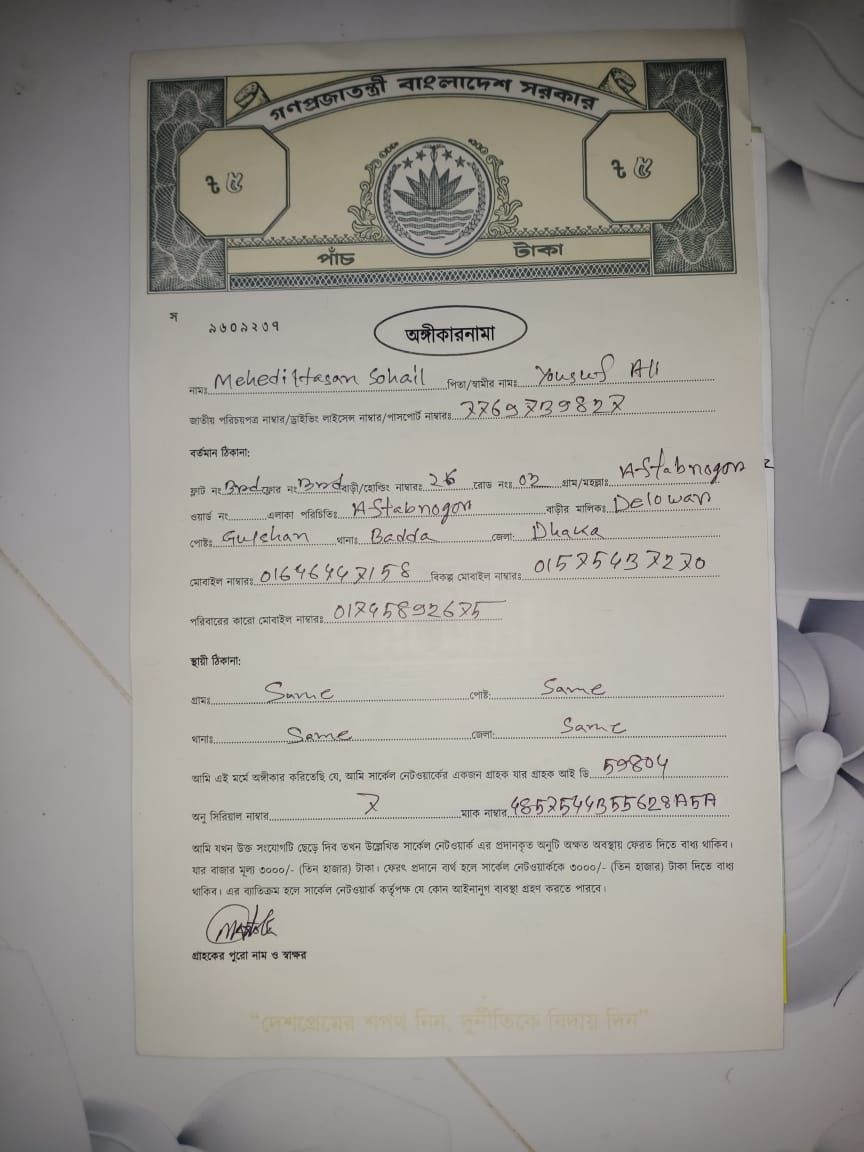 গণপ্রজাতন্ত্রী বাংলাদেশ সরকার
৳ ৫ ৳ ৫
পাঁচ টাকা
স ৯৬০৯২০৭
অঙ্গীকারনামা
নামঃ Mehedi Hasan Sohail পিতা/স্বামীর নামঃ Yousuf Ali
জাতীয় পরিচয়পত্র নাম্বার/ড্রাইভিং লাইসেন্স নাম্বার/পাসপোর্ট নাম্বারঃ
বর্তমান ঠিকানা:
ফ্লাট নং 3rd ফ্লোর নং 3rd বাড়ী/হোল্ডিং নাম্বারঃ 26 রোড নংঃ 03 গ্রাম/মহল্লাঃ A-Stabnogon
ওয়ার্ড নং এলাকা পরিচিতিঃ A-Stabnogon বাড়ীর মালিকঃ Delowan
পোষ্টঃ Gulshan থানাঃ Badda জেলা: Dhaka
মোবাইল নাম্বারঃ বিকল্প মোবাইল নাম্বারঃ
পরিবারের কারো মোবাইল নাম্বারঃ
স্থায়ী ঠিকানা:
গ্রামঃ Same পোষ্ট: Same
থানাঃ Same জেলা: Same
আমি এই মর্মে অঙ্গীকার করিতেছি যে, আমি সার্কেল নেটওয়ার্কের একজন গ্রাহক যার গ্রাহক আই ডি 59804
অনু সিরিয়াল নাম্বার ম্যাক নাম্বার
আমি যখন উক্ত সংযোগটি ছেড়ে দিব তখন উল্লেখিত সার্কেল নেটওয়ার্ক এর প্রদানকৃত অনুটি অক্ষত অবস্থায় ফেরত দিতে বাধ্য থাকিব।
যার বাজার মূল্য ৩০০০/- (তিন হাজার) টাকা। ফেরৎ প্রদানে ব্যর্থ হলে সার্কেল নেটওয়ার্ককে ৩০০০/- (তিন হাজার) টাকা দিতে বাধ্য
থাকিব। এর ব্যতিক্রম হলে সার্কেল নেটওয়ার্ক কর্তৃপক্ষ যে কোন আইনানুগ ব্যবস্থা গ্রহণ করতে পারবে।
গ্রাহকের পুরো নাম ও স্বাক্ষর
"দেশপ্রেমের শপথ নিন, দুর্নীতিকে বিদায় দিন"